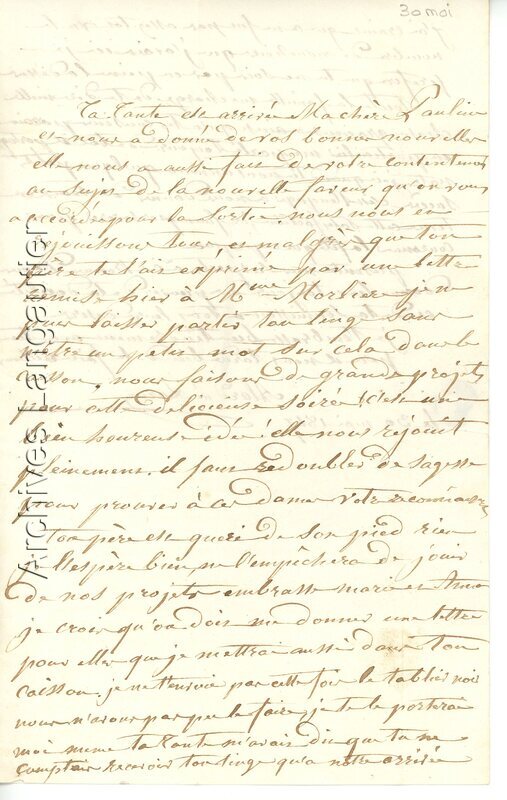 30 mai
Ta tante est arrivée Ma chère Pauline
et nous a donné de vos bonnes nouvelles
elle nous a aussi fait de votre contentement
au sujet de la nouvelle faveur qu'on vous
a accordée pour la sortie nous nous en
réjouissons tous, et malgré que ton
père te l'ait exprimé par une lettre
remise hier à Mme Morliere je ne
puis laisser partir ton linge sans
mettre un petit mot sur cela dans le
nous faisons de grands projets
pour cette délicieuse soirée! C'est une
bien heureuse idée! elle nous réjouit
pleinement. il faut redoubler de sagesse
pour prouver à ces dames votre reconnaissance
ton père est guéri de son pied rien
je l'espère bien ne l'empêchera de jouir
de nos projets embrasse marie et Anna
je crois qu'on doit me donner une lettre
pour elles que je mettrai aussi dans ton
caisson. je ne t'envoie pas cette fois le tablier noir
nous n'avons pas pu le faire, je te le porterai
moi meme ta tante m'avait dit que tu ne
comptais recevoir ton linge qu'à notre arrivée
Archives Lengautier